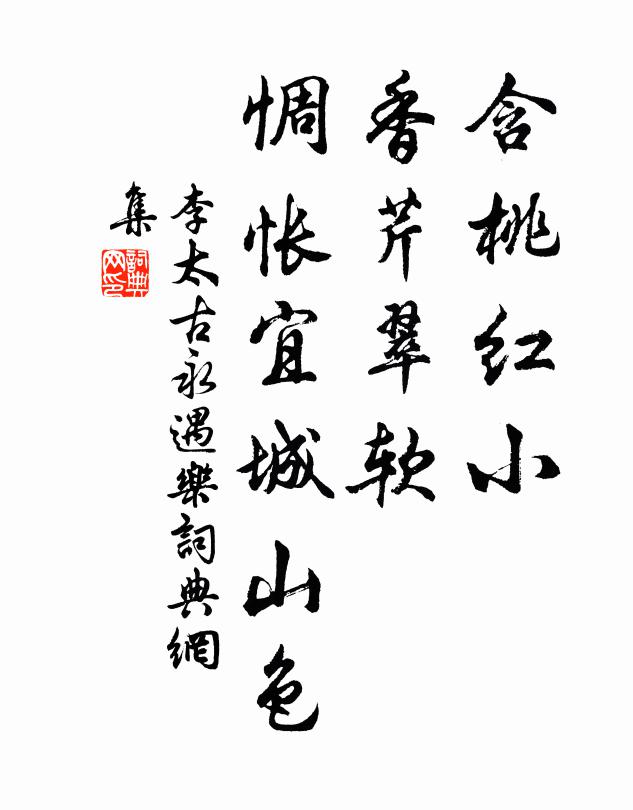 含桃红小
香芹翠软
惆怅宜城山色
李太古永遇樂詞典網
集
詞典
网印